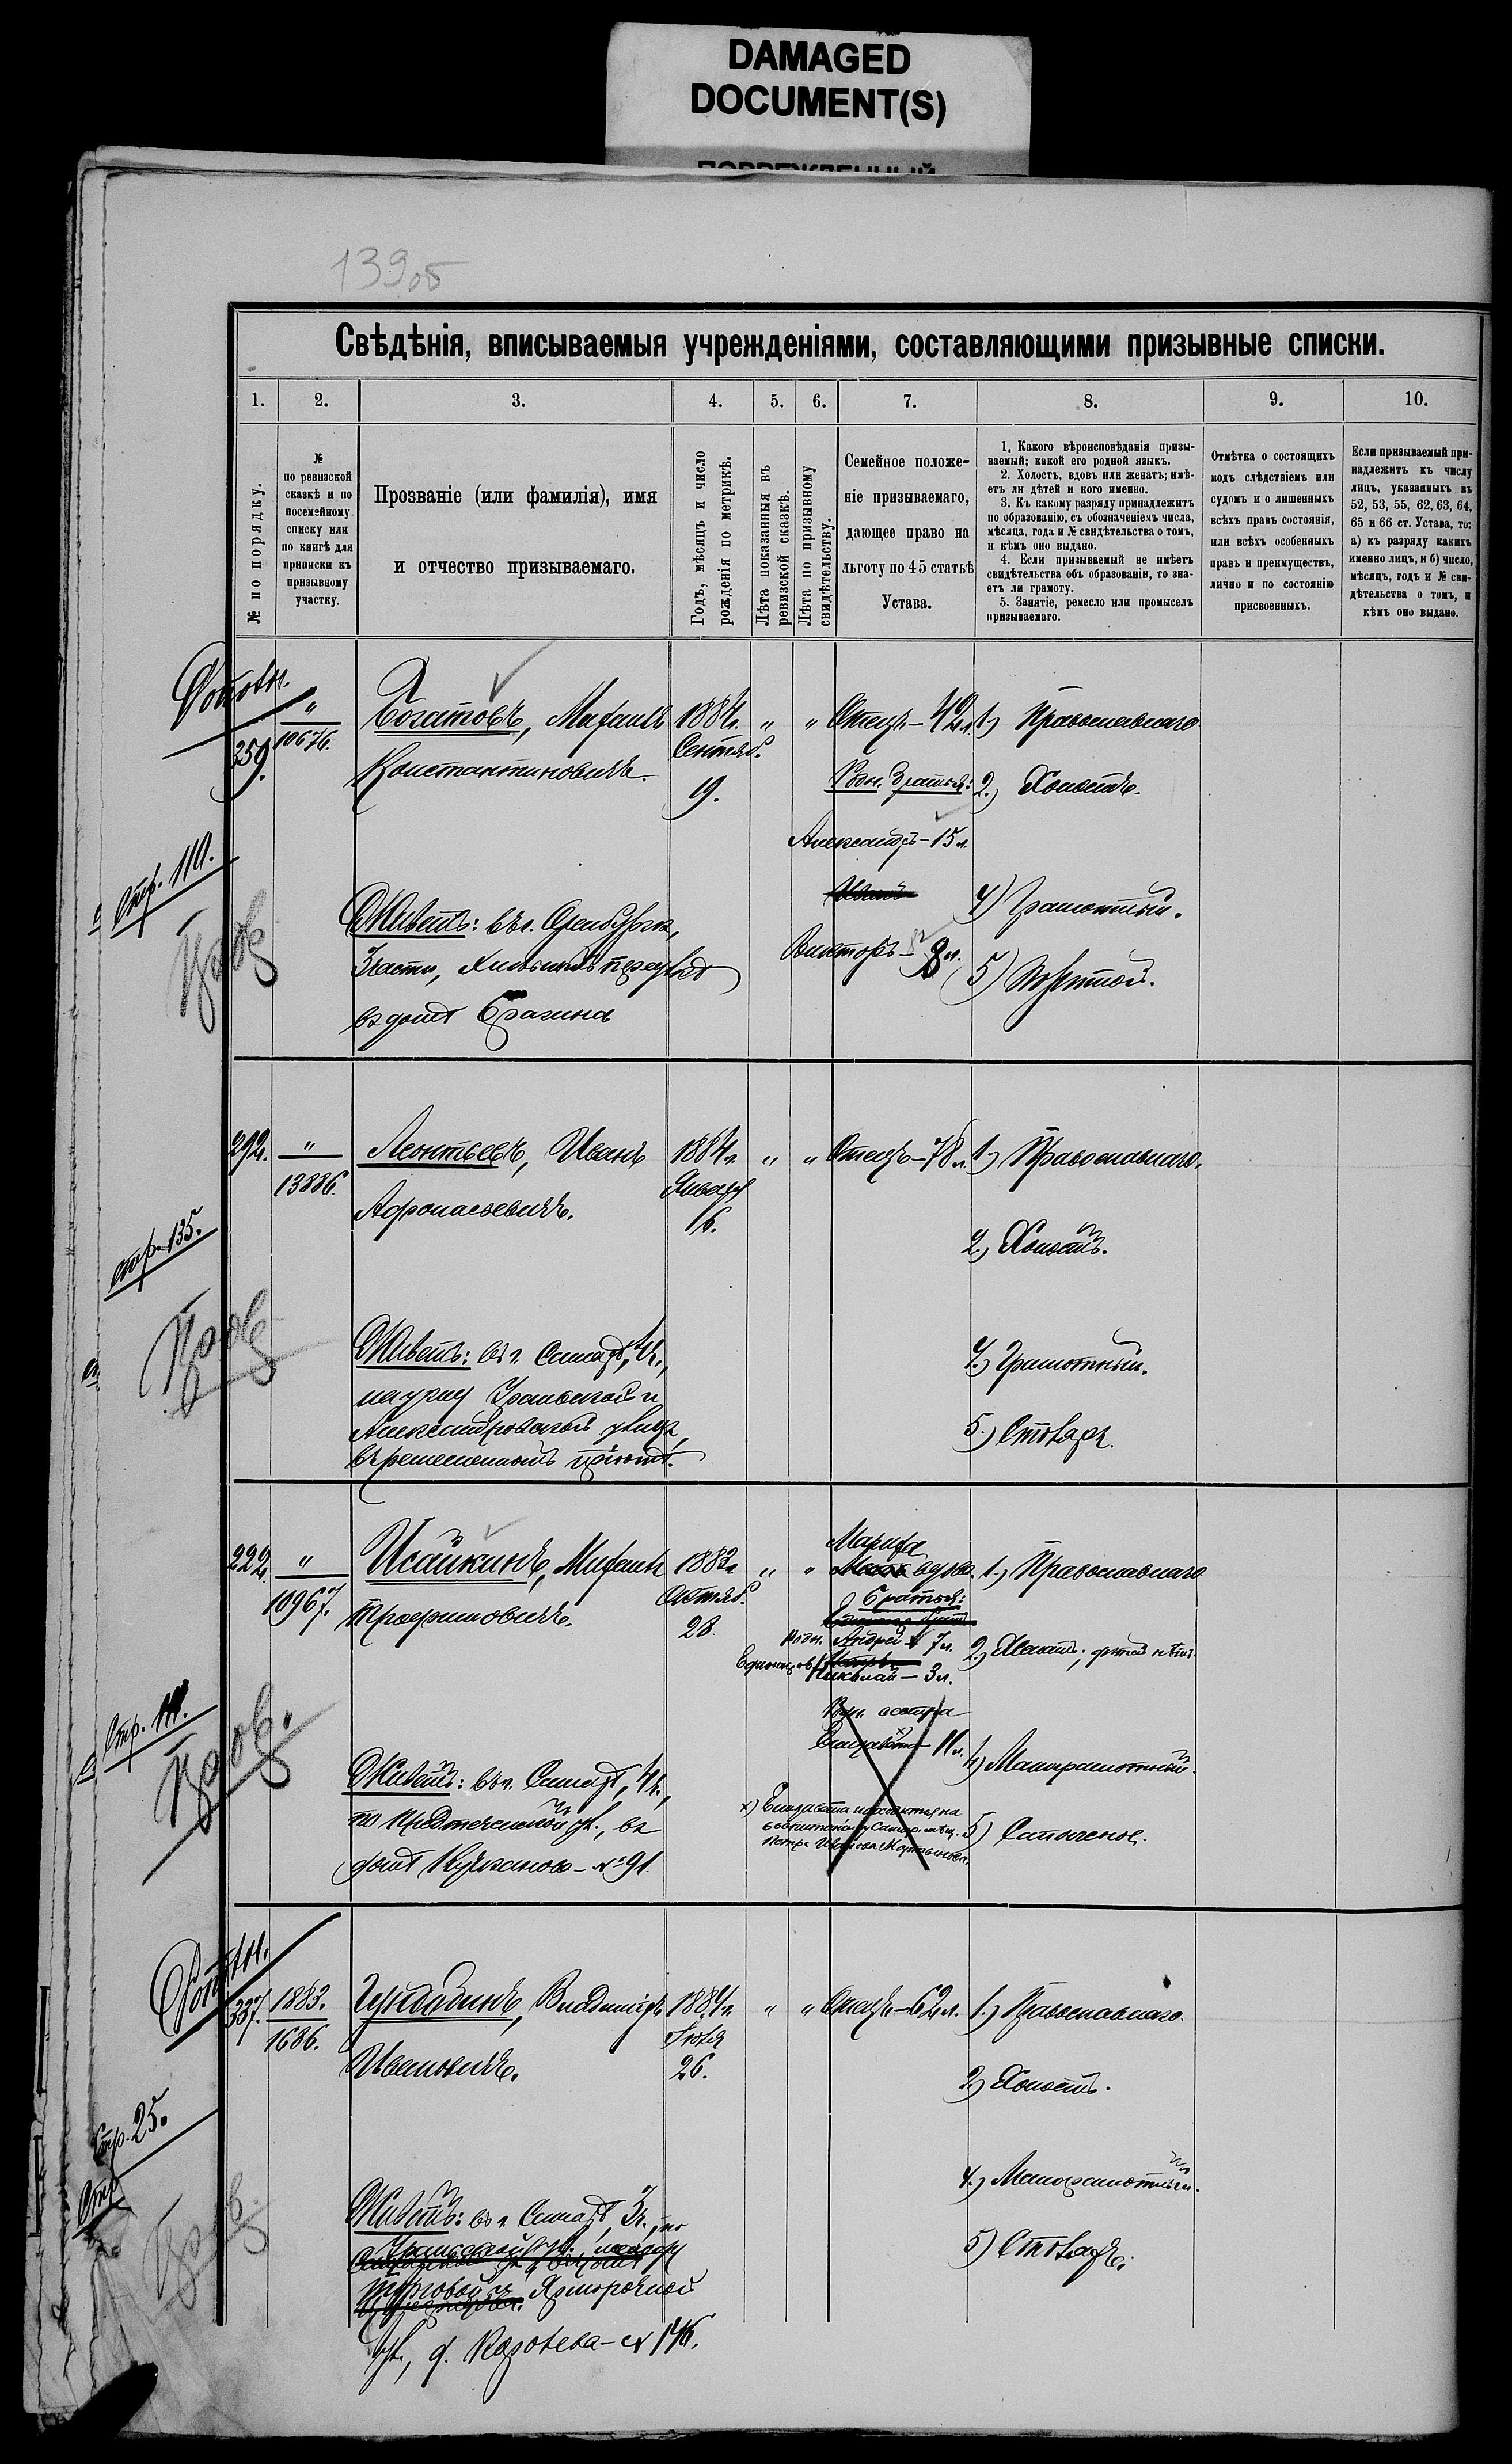 DAMAGED
DOCUMENT(S)
139об
Свѣдѣнія, вписываемыя учрежденіями, составляющими призывные списки.
1. 2. 3. 4. 5. 6. 7. 8. 9. 10.
№ по порядку.
№
по ревизской
сказкѣ и по
посемейному
списку или
по книгѣ для
приписки къ
призывному
участку.
Прозваніе (или фамилія), имя
и отчество призываемаго.
Годъ, мѣсяцъ и число
рожденія по метрикѣ.
Лѣта показанныя въ
ревизской сказкѣ.
Лѣта по призывному
свидѣтельству.
Семейное положе-
ніе призываемаго,
дающее право на
льготу по 45 статьѣ
Устава.
1. Какого вѣроисповѣданія призы-
ваемый; какой его родной языкъ.
2. Холостъ, вдовъ или женатъ; имѣ-
етъ ли дѣтей и кого именно.
3. Къ какому разряду принадлежитъ
по образованію, съ обозначеніемъ числа,
мѣсяца, года и № свидѣтельства о томъ,
и кѣмъ оно выдано.
4. Если призываемый не имѣетъ
свидѣтельства объ образованіи, то зна-
етъ ли грамоту.
5. Занятіе, ремесло или промыселъ
призываемаго.
Отмѣтка о состоящихъ
подъ слѣдствіемъ или
судомъ и о лишенныхъ
всѣхъ правъ состоянія,
или всѣхъ особенныхъ
правъ и преимуществъ,
лично и по состоянію
присвоенныхъ.
Если призываемый при-
надлежитъ къ числу
лицъ, указанныхъ въ
52, 53, 55, 62, 63, 64,
65 и 66 ст. Устава, то:
а) къ разряду какихъ
именно лицъ, и б) число,
мѣсяцъ, годъ и № сви-
дѣтельства о томъ, и
кѣмъ оно выдано.
259.
"
10676.
Богатовъ, Михаилъ
Константиновичъ.
1884г.
Сентяб.
19.
" "
Отецъ-42л.
Родн. братья:
Александръ-15л.
Викторъ- 8л.
1) Православнаго
2.) Холостъ.
4) Грамотный.
5) Портной.
Стр. 110.
Живетъ: въ г. Оренбургѣ,
3 части,
въ домѣ Брагина
292.
"
13886.
Леонтьевъ, Иванъ
Афонасьевичъ.
1884г.
Январ
16.
" "
Отецъ-78л.
1.) Православнаго.
2.) Холостъ.
4.) Грамотный.
5.) Столяръ.
стр. 135.
Живетъ: въ г. Самарѣ, 4ч.,
на углу Уральской и
Александровской улицъ,
въ ремесленномъ пріютѣ.
222.
"
10967.
Исайкинъ, Михаилъ
Трофимовичъ.
1883г.
Октяб.
28.
" "
Мачиха
вдова.
Братья:
родн. Андрей 7л.
Николай-3л.
Родн. сестра
Елизавета-11л.
х) Елизавета находится на
1.) Православнаго
2.) Женатъ; дѣтей нѣтъ.
4) Малограмотный.
5) Сапожное.
Живетъ: въ г. Самарѣ, 4ч.,
по Предтеченской ул., въ
домѣ -№91.
337.
1883.
1686.
Владиміръ
Ивановичъ.
1884г.
Іюля
26.
" "
Отецъ-62л.
1.) Православнаго.
2) Холостъ.
4.) Малограмотный.
5) Столяръ.
Стр. 25.
Живетъ: въ г. Самарѣ, 3ч., по
Ярморочной
ул., д.